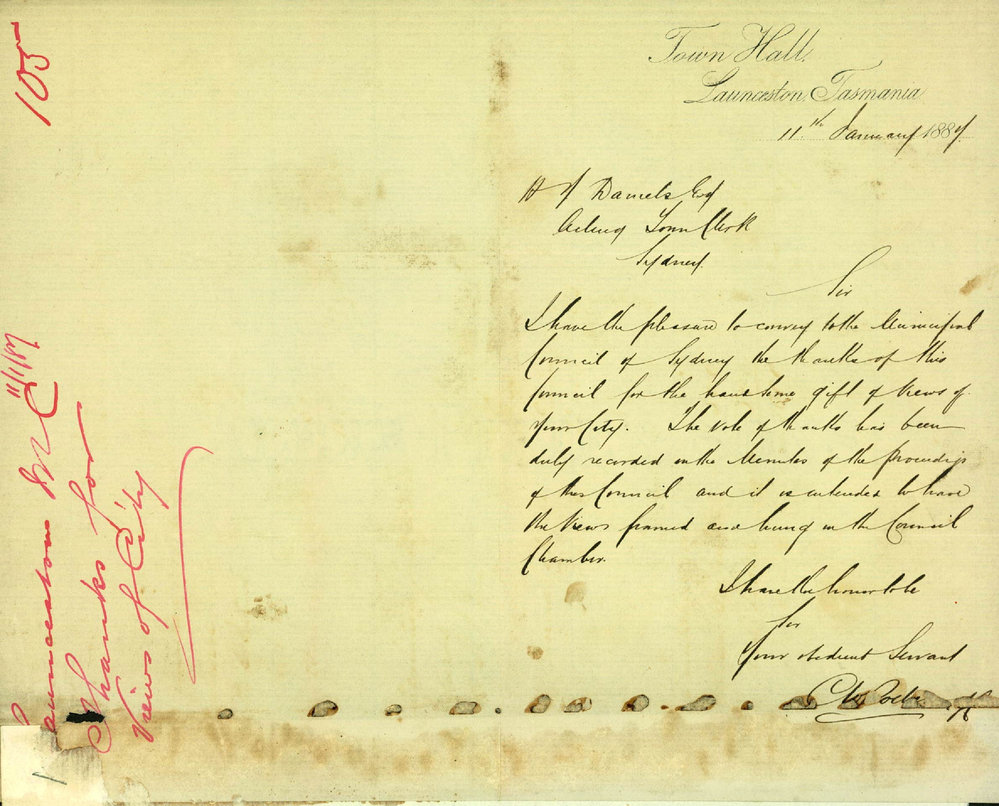 105
Launceston M C 11/1/87
Thanks for
Views of City
Town Hall,
Launceston, Tasmania
11th January 1887
H Daniels Esq
Acting Town Clerk
Sydney
Sir
I have the pleasure to convey to the Municipal
Council of Sydney the thanks of this
Council for the handsome gift of Views of
Your City. The vote of thanks has been
duly recorded in the Minutes of the proceedings
of this Council and it is intended to have
the Views framed and hung in the Council
Chamber.
I have the honor to be
Sir
Your obedient Servant